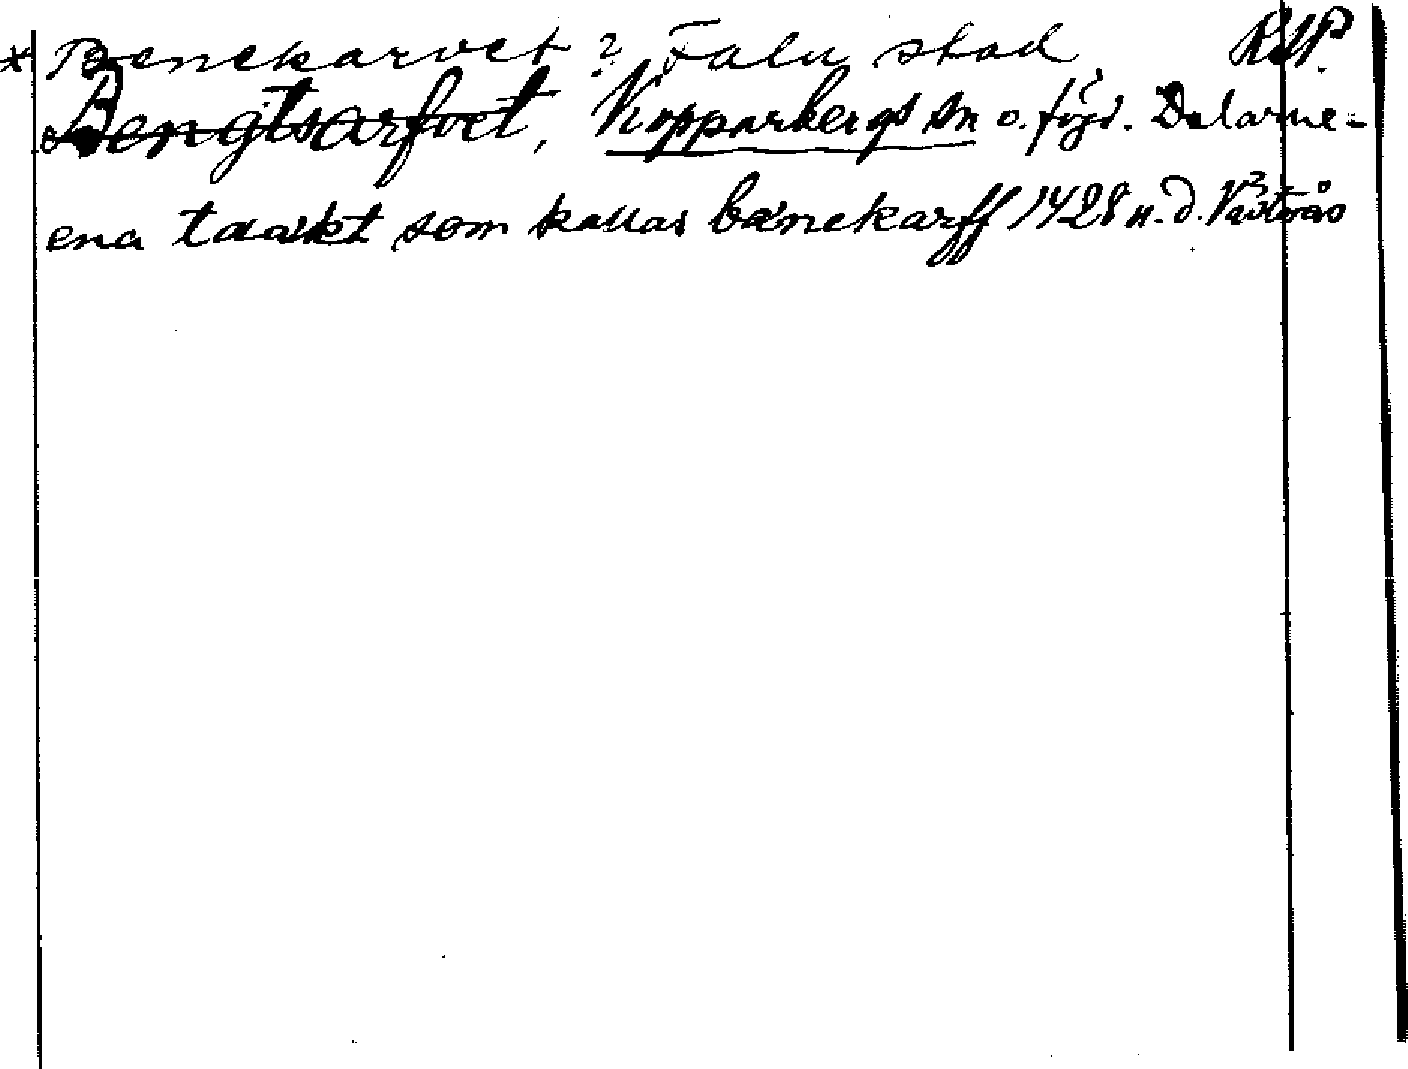 * Benekarvet ? Falu stad RAP.
Bengtsarfvet, Kopparbergs sn o. fögd. Dalarne.
ena taækt som kallas bænekarff 1428 n. d. Västerås